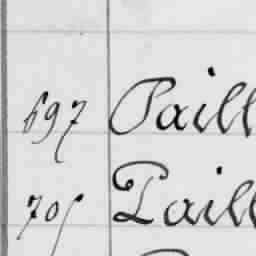 697 Paill
705 Paill